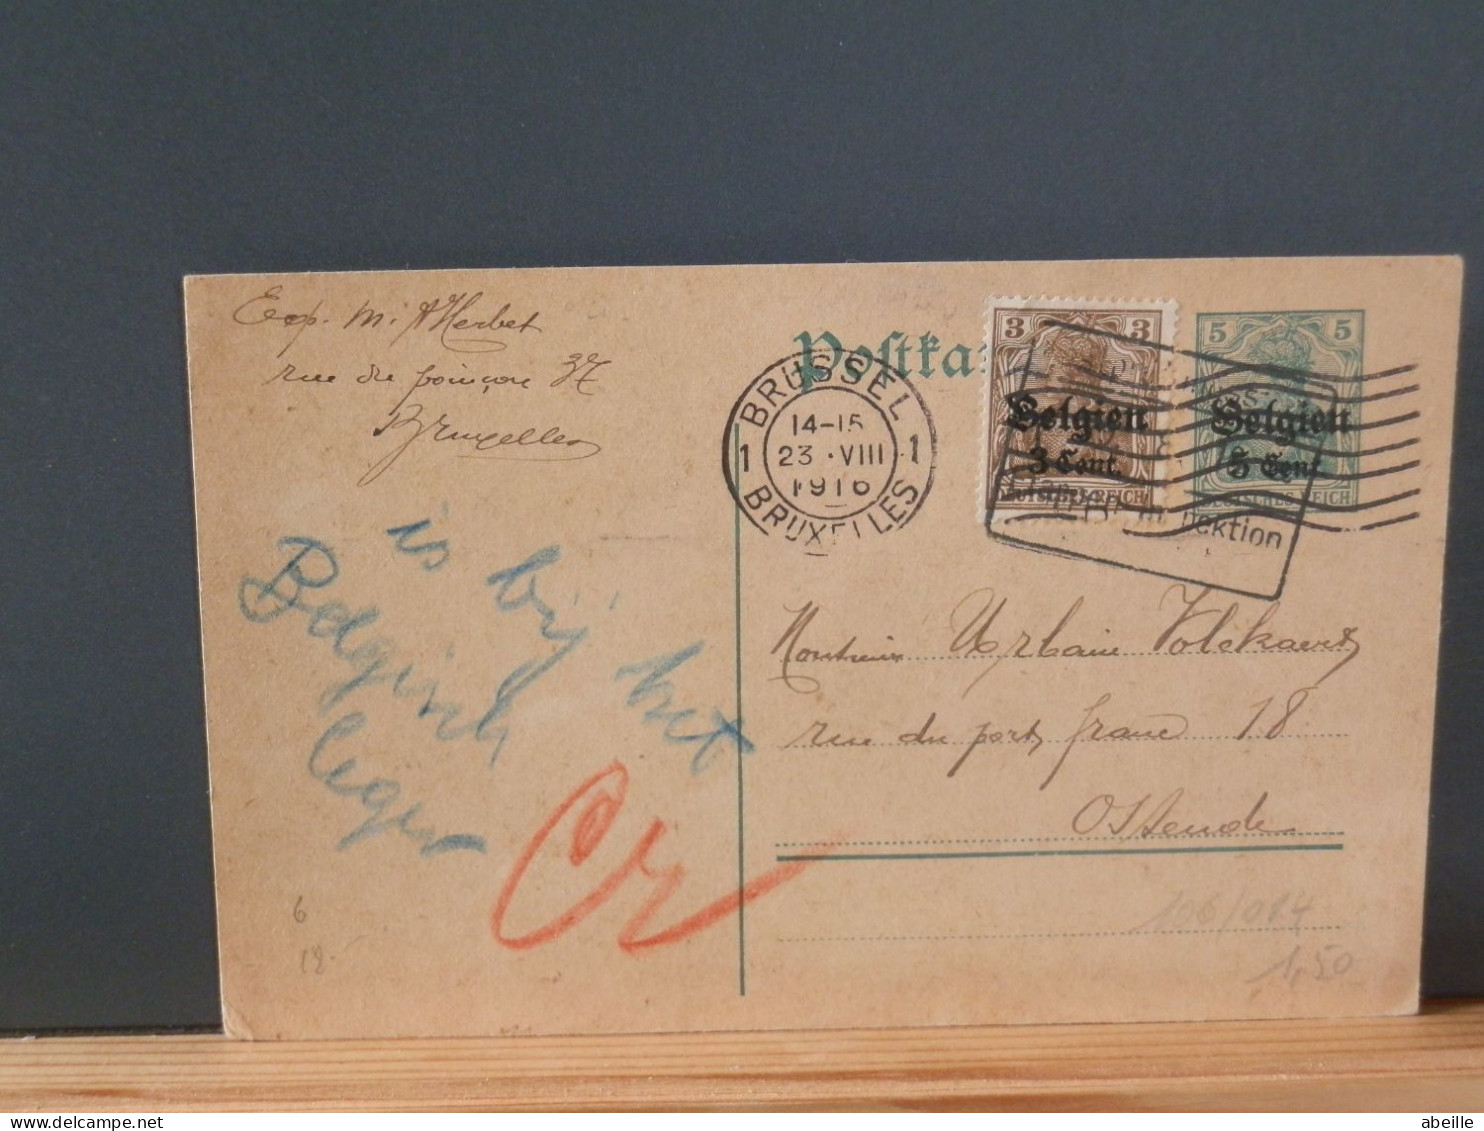 Exp. M. A Herbet
rue du poinçon 37
Bruxelles
Postka
BRUSSEL
14-15
23 · VIII
1916
1 1
BRUXELLES
3 3
Belgien
3 Cent.
DEUTSCHES REICH
5 5
Belgien
5 Cent
DEUTSCHES REICH
ektion
is bij het
Belgisch
leger
Monsieur Urbain Volckaert
rue du port franc 18
Ostende
6
18
106/014
1,50
abeille